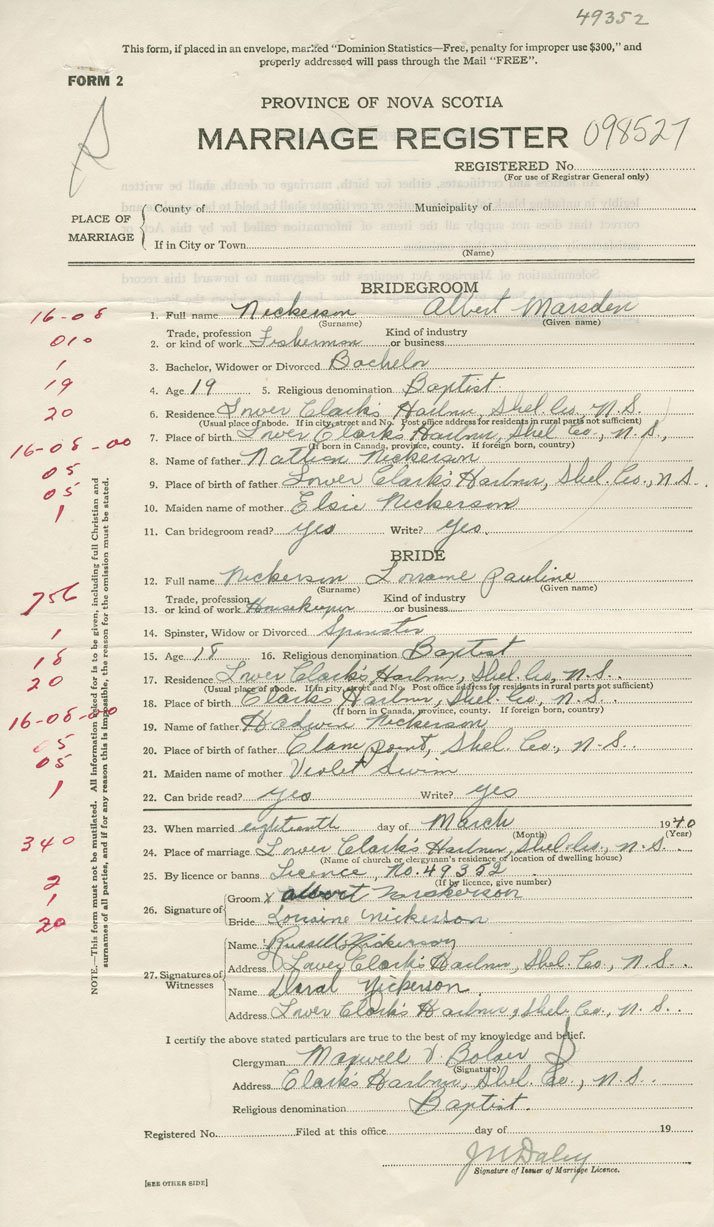 49352
This form, if placed in an envelope, marked "Dominion Statistics—Free, penalty for improper use $300," and
properly addressed will pass through the Mail "FREE".
FORM 2
PROVINCE OF NOVA SCOTIA
MARRIAGE REGISTER 098527
REGISTERED No.
(For use of Registrar General only)
PLACE OF MARRIAGE
County of Municipality of
If in City or Town
(Name)
BRIDEGROOM
16-08 1. Full name Nickerson Albert Marsden
(Surname) (Given name)
010 2. Trade, profession or kind of work Fisherman Kind of industry or business
1 3. Bachelor, Widower or Divorced Bachelor
19 4. Age 19 5. Religious denomination Baptist
20 6. Residence Lower Clark's Harbour, Shel. Co., N.S.
(Usual place of abode. If in city, street and No. Post office address for residents in rural parts not sufficient)
16-08-00 7. Place of birth Lower Clark's Harbour, Shel Co., N.S.,
(If born in Canada, province, county. If foreign born, country)
05 8. Name of father Nickerson
05 9. Place of birth of father Lower Clark's Harbour, Shel. Co., N.S.
1 10. Maiden name of mother Elsie Nickerson
11. Can bridegroom read? yes Write? yes.
BRIDE
12. Full name Nickerson Lorraine Pauline
(Surname) (Given name)
756 13. Trade, profession or kind of work Housekeeper Kind of industry or business
1 14. Spinster, Widow or Divorced Spinster
18 15. Age 18 16. Religious denomination Baptist
20 17. Residence Lower Clark's Harbour, Shel. Co., N.S.
(Usual place of abode. If in city, street and No. Post office address for residents in rural parts not sufficient)
16-08-00 18. Place of birth Clark's Harbour, Shel. Co., N.S.
(If born in Canada, province, county. If foreign born, country)
19. Name of father Nickerson
05 20. Place of birth of father Clam Point, Shel. Co., N.S.
05 21. Maiden name of mother Violet Swim
1 22. Can bride read? yes Write? yes
23. When married eighteenth day of March 1940
(Month) (Year)
340 24. Place of marriage Lower Clark's Harbour, Shel. Co., N.S.
(Name of church or clergyman's residence or location of dwelling house)
2 25. By licence or banns Licence, No. 49352
(If by licence, give number)
1 26. Signature of Groom x Albert Nickerson
20 Bride Loraine Nickerson
27. Signatures of Witnesses
Name Russell Nickerson
Address Lower Clark's Harbour, Shel. Co., N.S.
Name Nickerson
Address Lower Clark's Harbour, Shel. Co., N.S.
I certify the above stated particulars are true to the best of my knowledge and belief.
Clergyman Maxwell V. Bolser
(Signature)
Address Clark's Harbour, Shel. Co., N.S.
Religious denomination Baptist.
Registered No. Filed at this office day of 19
Daley
Signature of Issuer of Marriage Licence.
[SEE OTHER SIDE]
NOTE.—This form must not be mutilated. All Information asked for is to be given, including full Christian and
surnames of all parties, and if for any reason this is impossible, the reason for the omission must be stated.